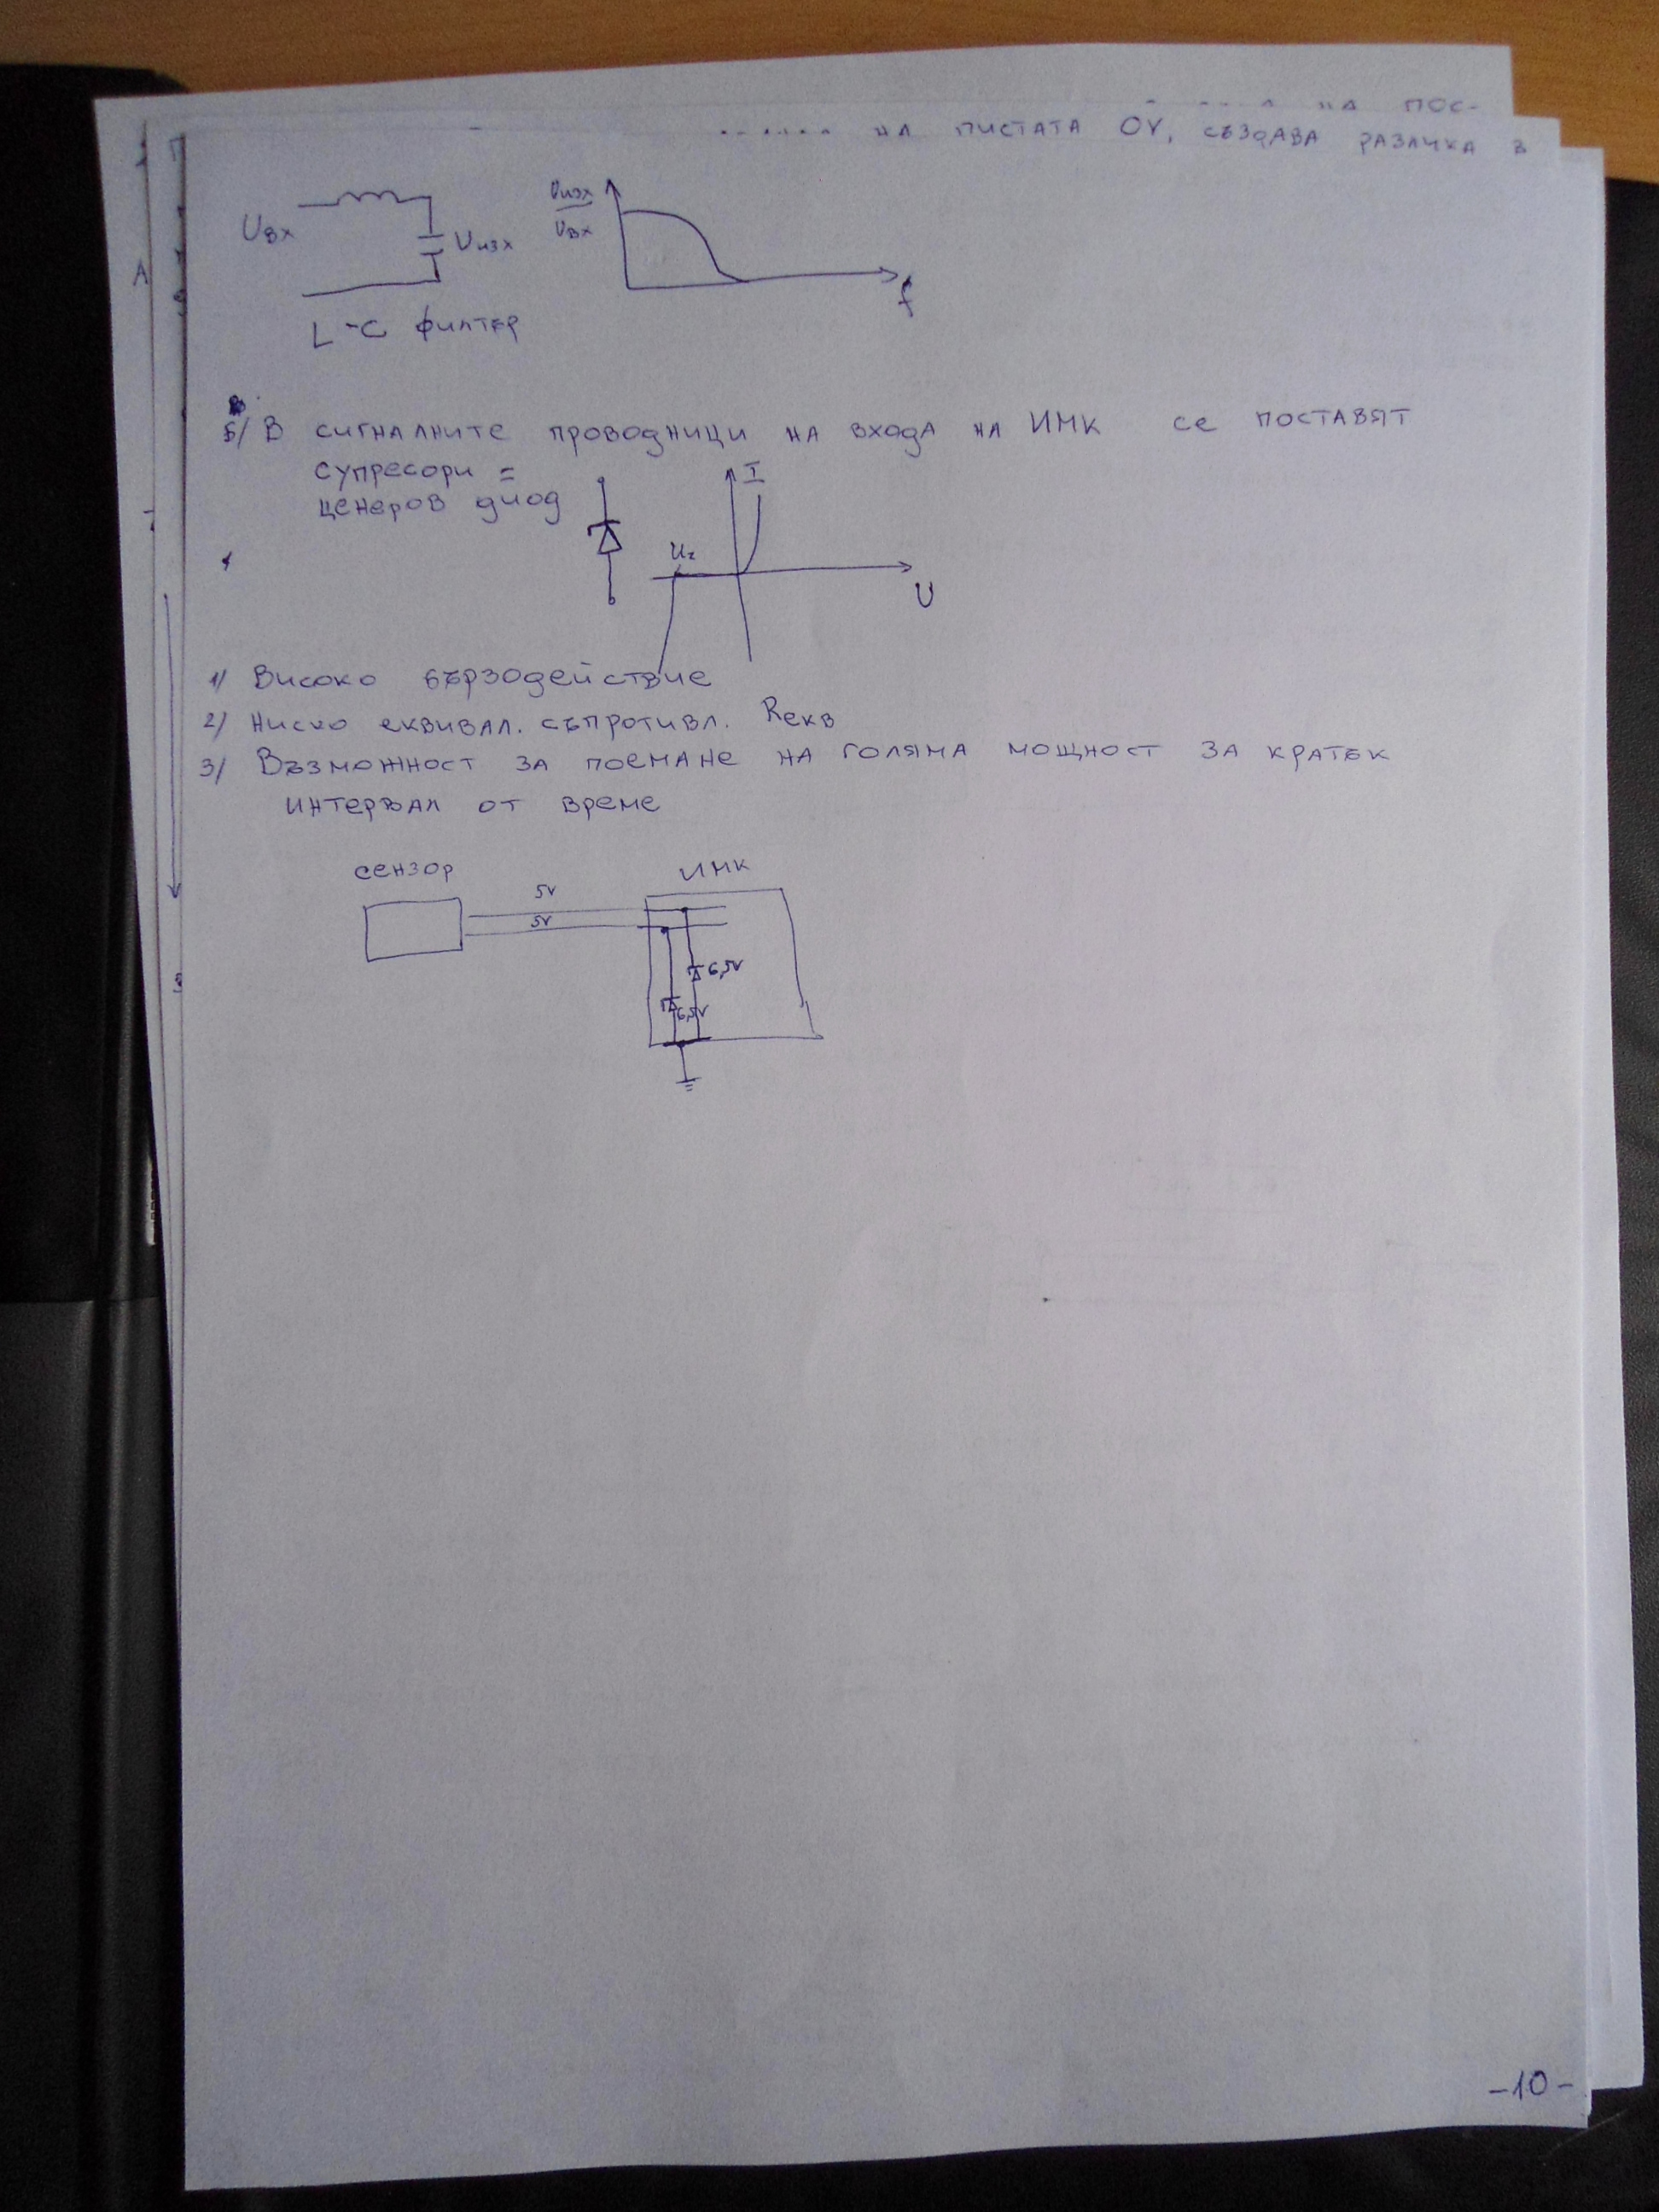 НА ПОС-
НА ПИСТАТА 0V, СЪЗДАВА РАЗЛИКА В
Uвх
Uизх
L-C филтър
Uизх
Uвх
f
Б/ В сигналните проводници на входа на ИМК се поставят
супресори =
ценеров диод
I
Uz
U
1/ Високо бързодействие
2/ Ниско еквивал. съпротивл. Rекв
3/ Възможност за поемане на голяма мощност за кратък
интервал от време
сензор
ИМК
5V
5V
6,5V
6,5V
А
-10-